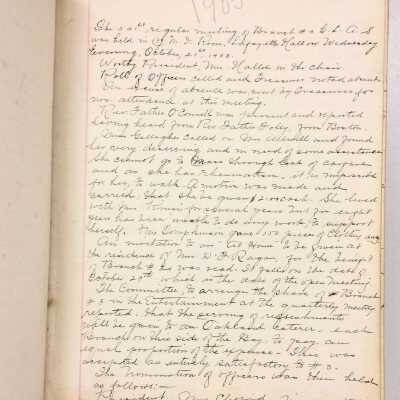 1903
The 321st regular meeting of Branch #3 C. L. A. S.
was held in Y. M. I. Room, Lafayette Hall on Wednesday
Evening, October 21st 1903.
Worthy President, Mrs. in the Chair
Roll of Officers called and Treasurer noted absent.
An excuse of absence was sent by Treasurer for
non attendance at this meeting.
Rev. Father O'Connell was present and reported
having heard from Rev Father Foley from Boston.
Miss Gallagher called on Mrs and found
her very deserving and in need of some assistance.
She cannot go to Mass through lack of carfare
and as she has rheumatism, it is impossible
for her to walk. A motion was made and
carried that she be given $2.00 cash. She lived
with for several years and for eight
years has been unable to do any work to support
herself. Mrs gave 100 pieces of clothing
An invitation to an "At Home" to be given at
the residence of Mrs D. F. Ragan, for the benefit
of Branch # was read. It falls on the date of
October 28th which is the date of the open meeting.
The Committee to arrange the share of Branch
# 3 in the Entertainment at the quarterly meeting
reported that the serving of refreshments
will be given to an Oakland caterer, each
Branch on this side of the Bay to pay an
equal proportion of the expense. This was
accepted as entirely satisfactory to # 3.
The nomination of officers was then held
as follows:—
President, Mrs